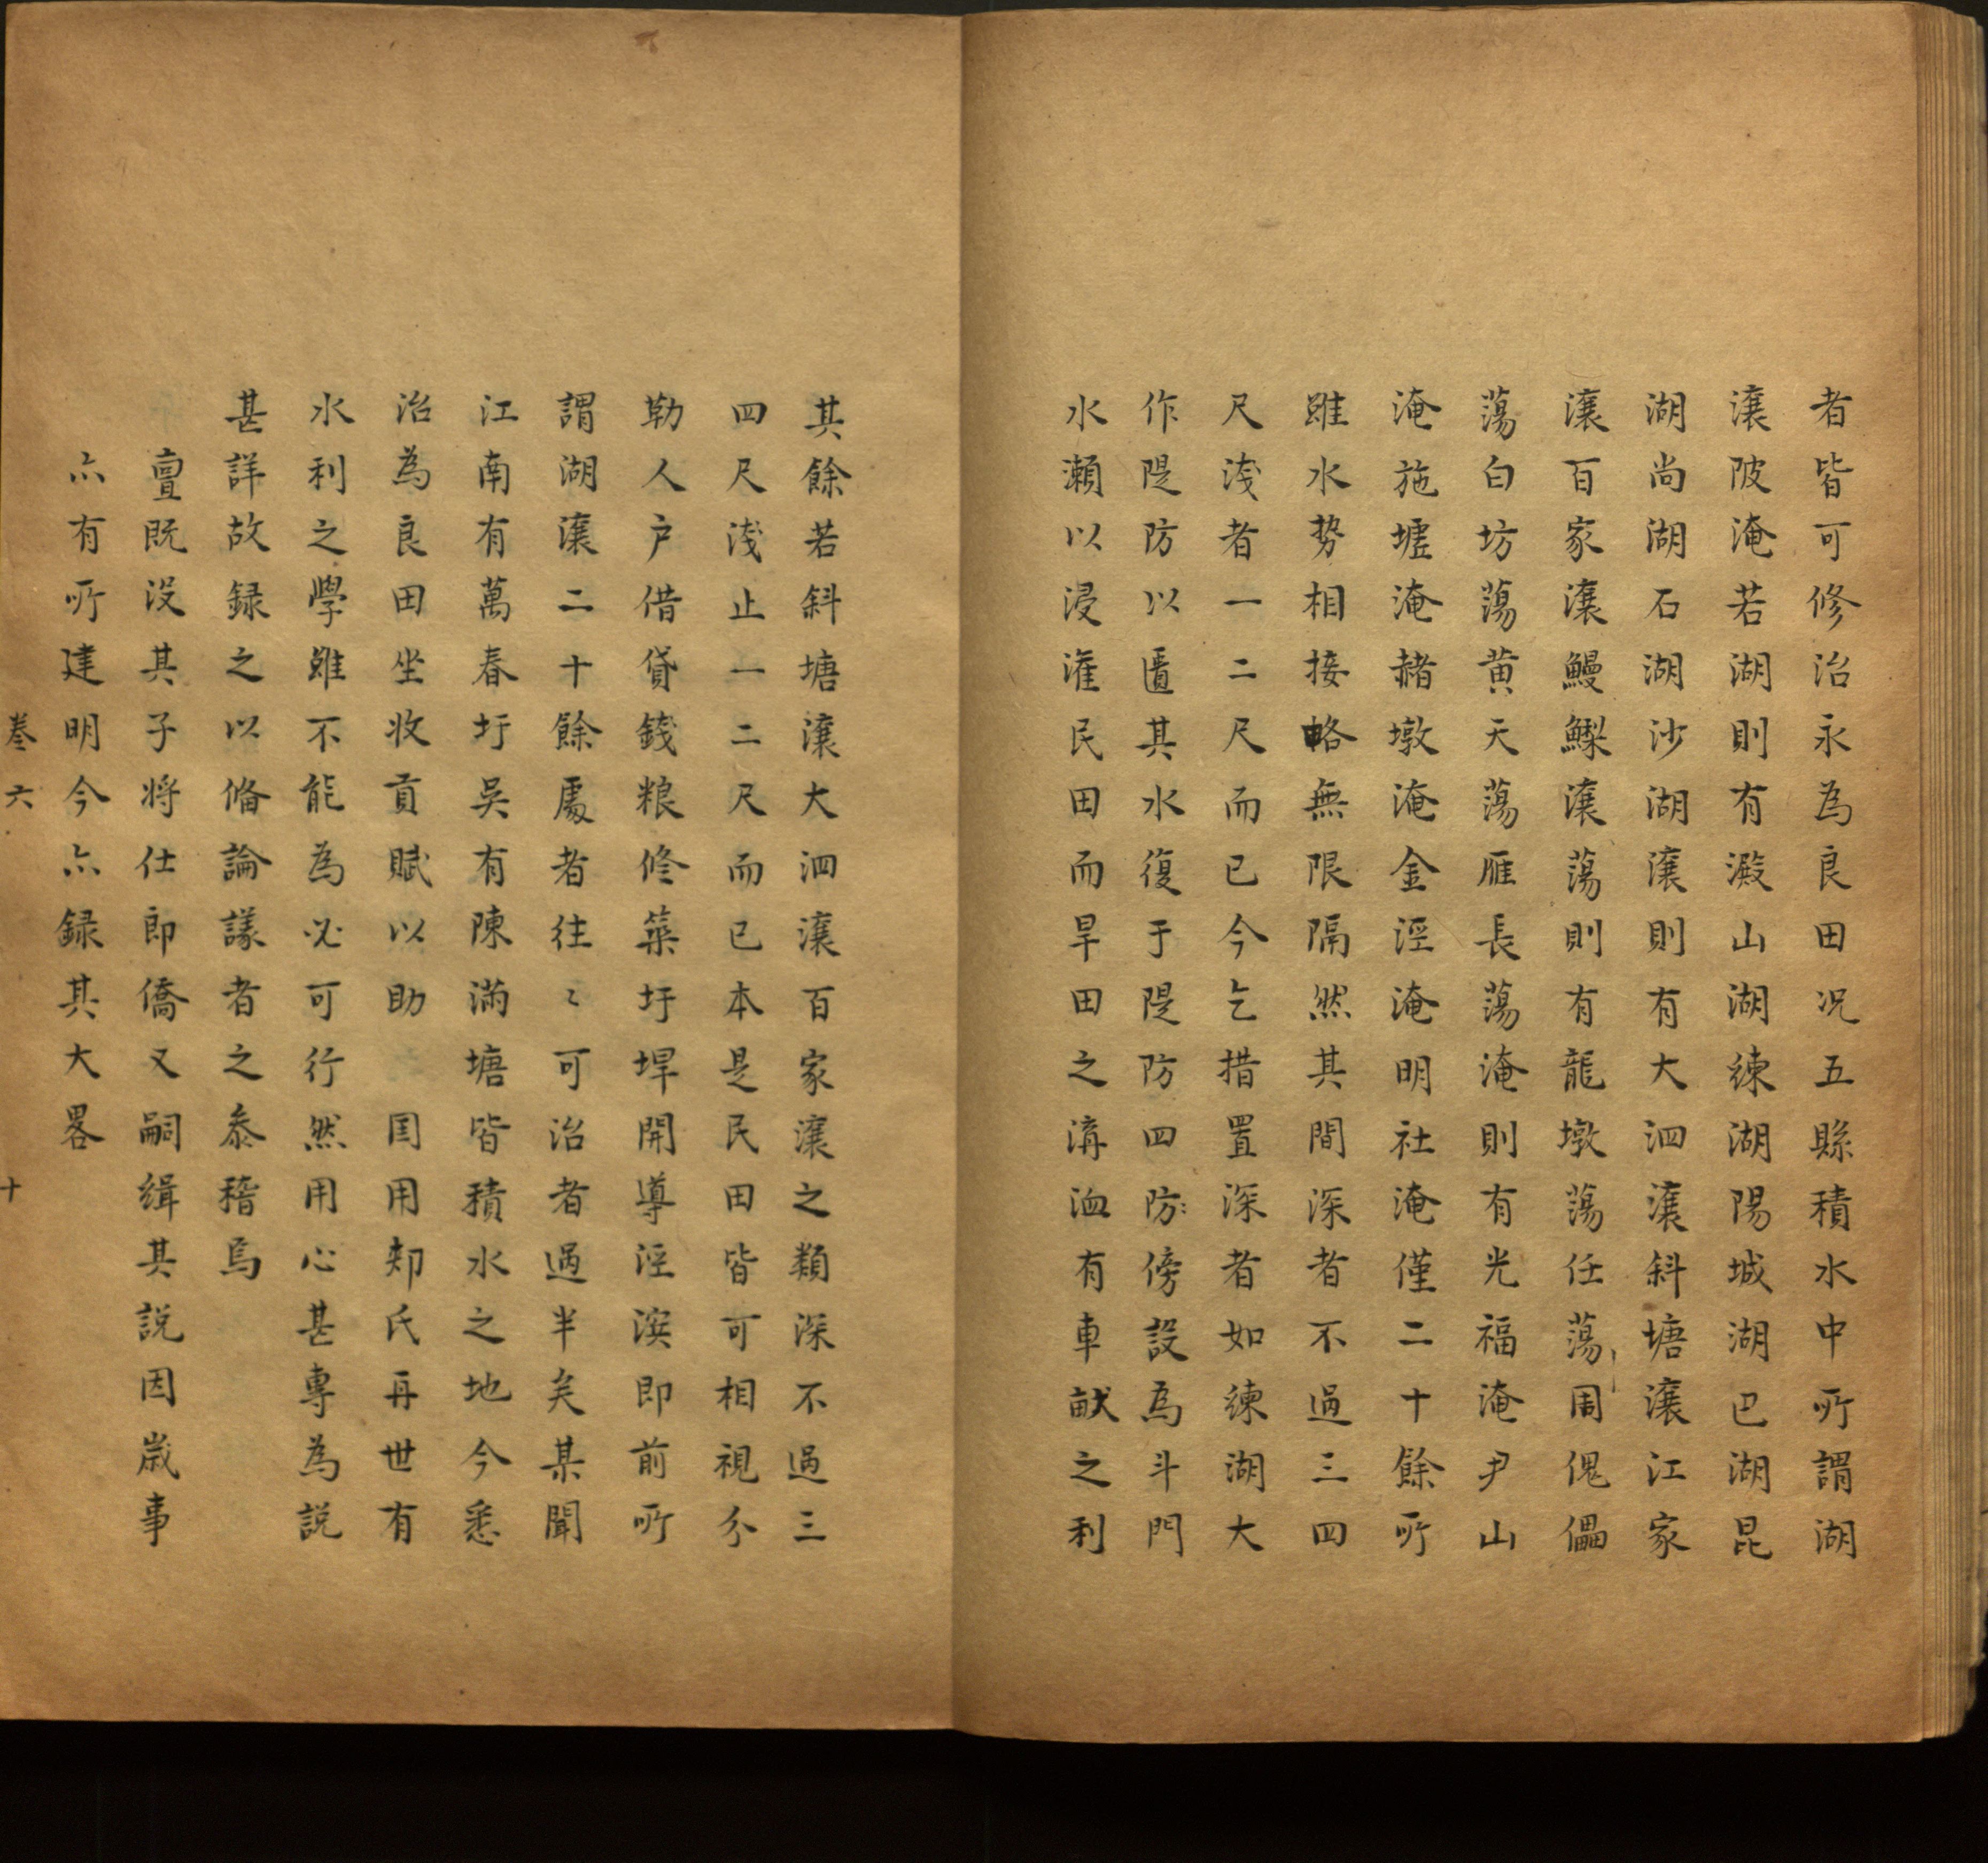 者皆可修治永為良田况五縣積水中所謂湖
瀼陂淹若湖則有澱山湖練湖陽城湖巴湖昆
湖尚湖石湖沙湖瀼則有大泗瀼斜塘瀼江家
瀼百家瀼鰻鱺瀼蕩則有龍墩蕩任蕩周傀儡
蕩白坊蕩黄天蕩雁長蕩淹則有光福淹尹山
淹施墟淹赭墩淹金涇淹明社淹僅二十餘所
雖水势相接略無限隔然其間深者不過三四
尺淺者一二尺而已今乞措置深者如練湖大
作隄防以匱其水復于隄防四防傍設為斗門
水瀬以浸潅民田而旱田之溝洫有車畎之利
其餘若斜塘瀼大泗瀼百家瀼之類深不過三
四尺淺止一二尺而已本是民田皆可相視分
勒人户借貸錢粮修築圩埂開導涇浜即前所
謂湖瀼二十餘處者往〻可治者過半矣某聞
江南有萬春圩吳有陳滿塘皆積水之地今悉
治為良田坐收貢賦以助　国用郏氏再世有
水利之學雖不能為必可行然用心甚專為説
甚詳故録之以備論議者之叅稽焉
亶既没其子將仕郎僑又嗣緝其説因嵗事
亦有所建明今亦録其大畧
卷六　十